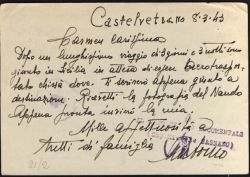 Castelvetrano 8-3-43
Carmen carissima
Dopo un lunghissimo viaggio di 3 giorni e 3 notti sono
giunto in Sicilia in attesa di essere aerotraspor-
tato chissà dove. Ti scriverò appena giunto a
destinazione. Ricevetti la fotografia del Nando
Appena pronta invierò la mia.
Mille affettuosità a
tutti di famiglia
21/2